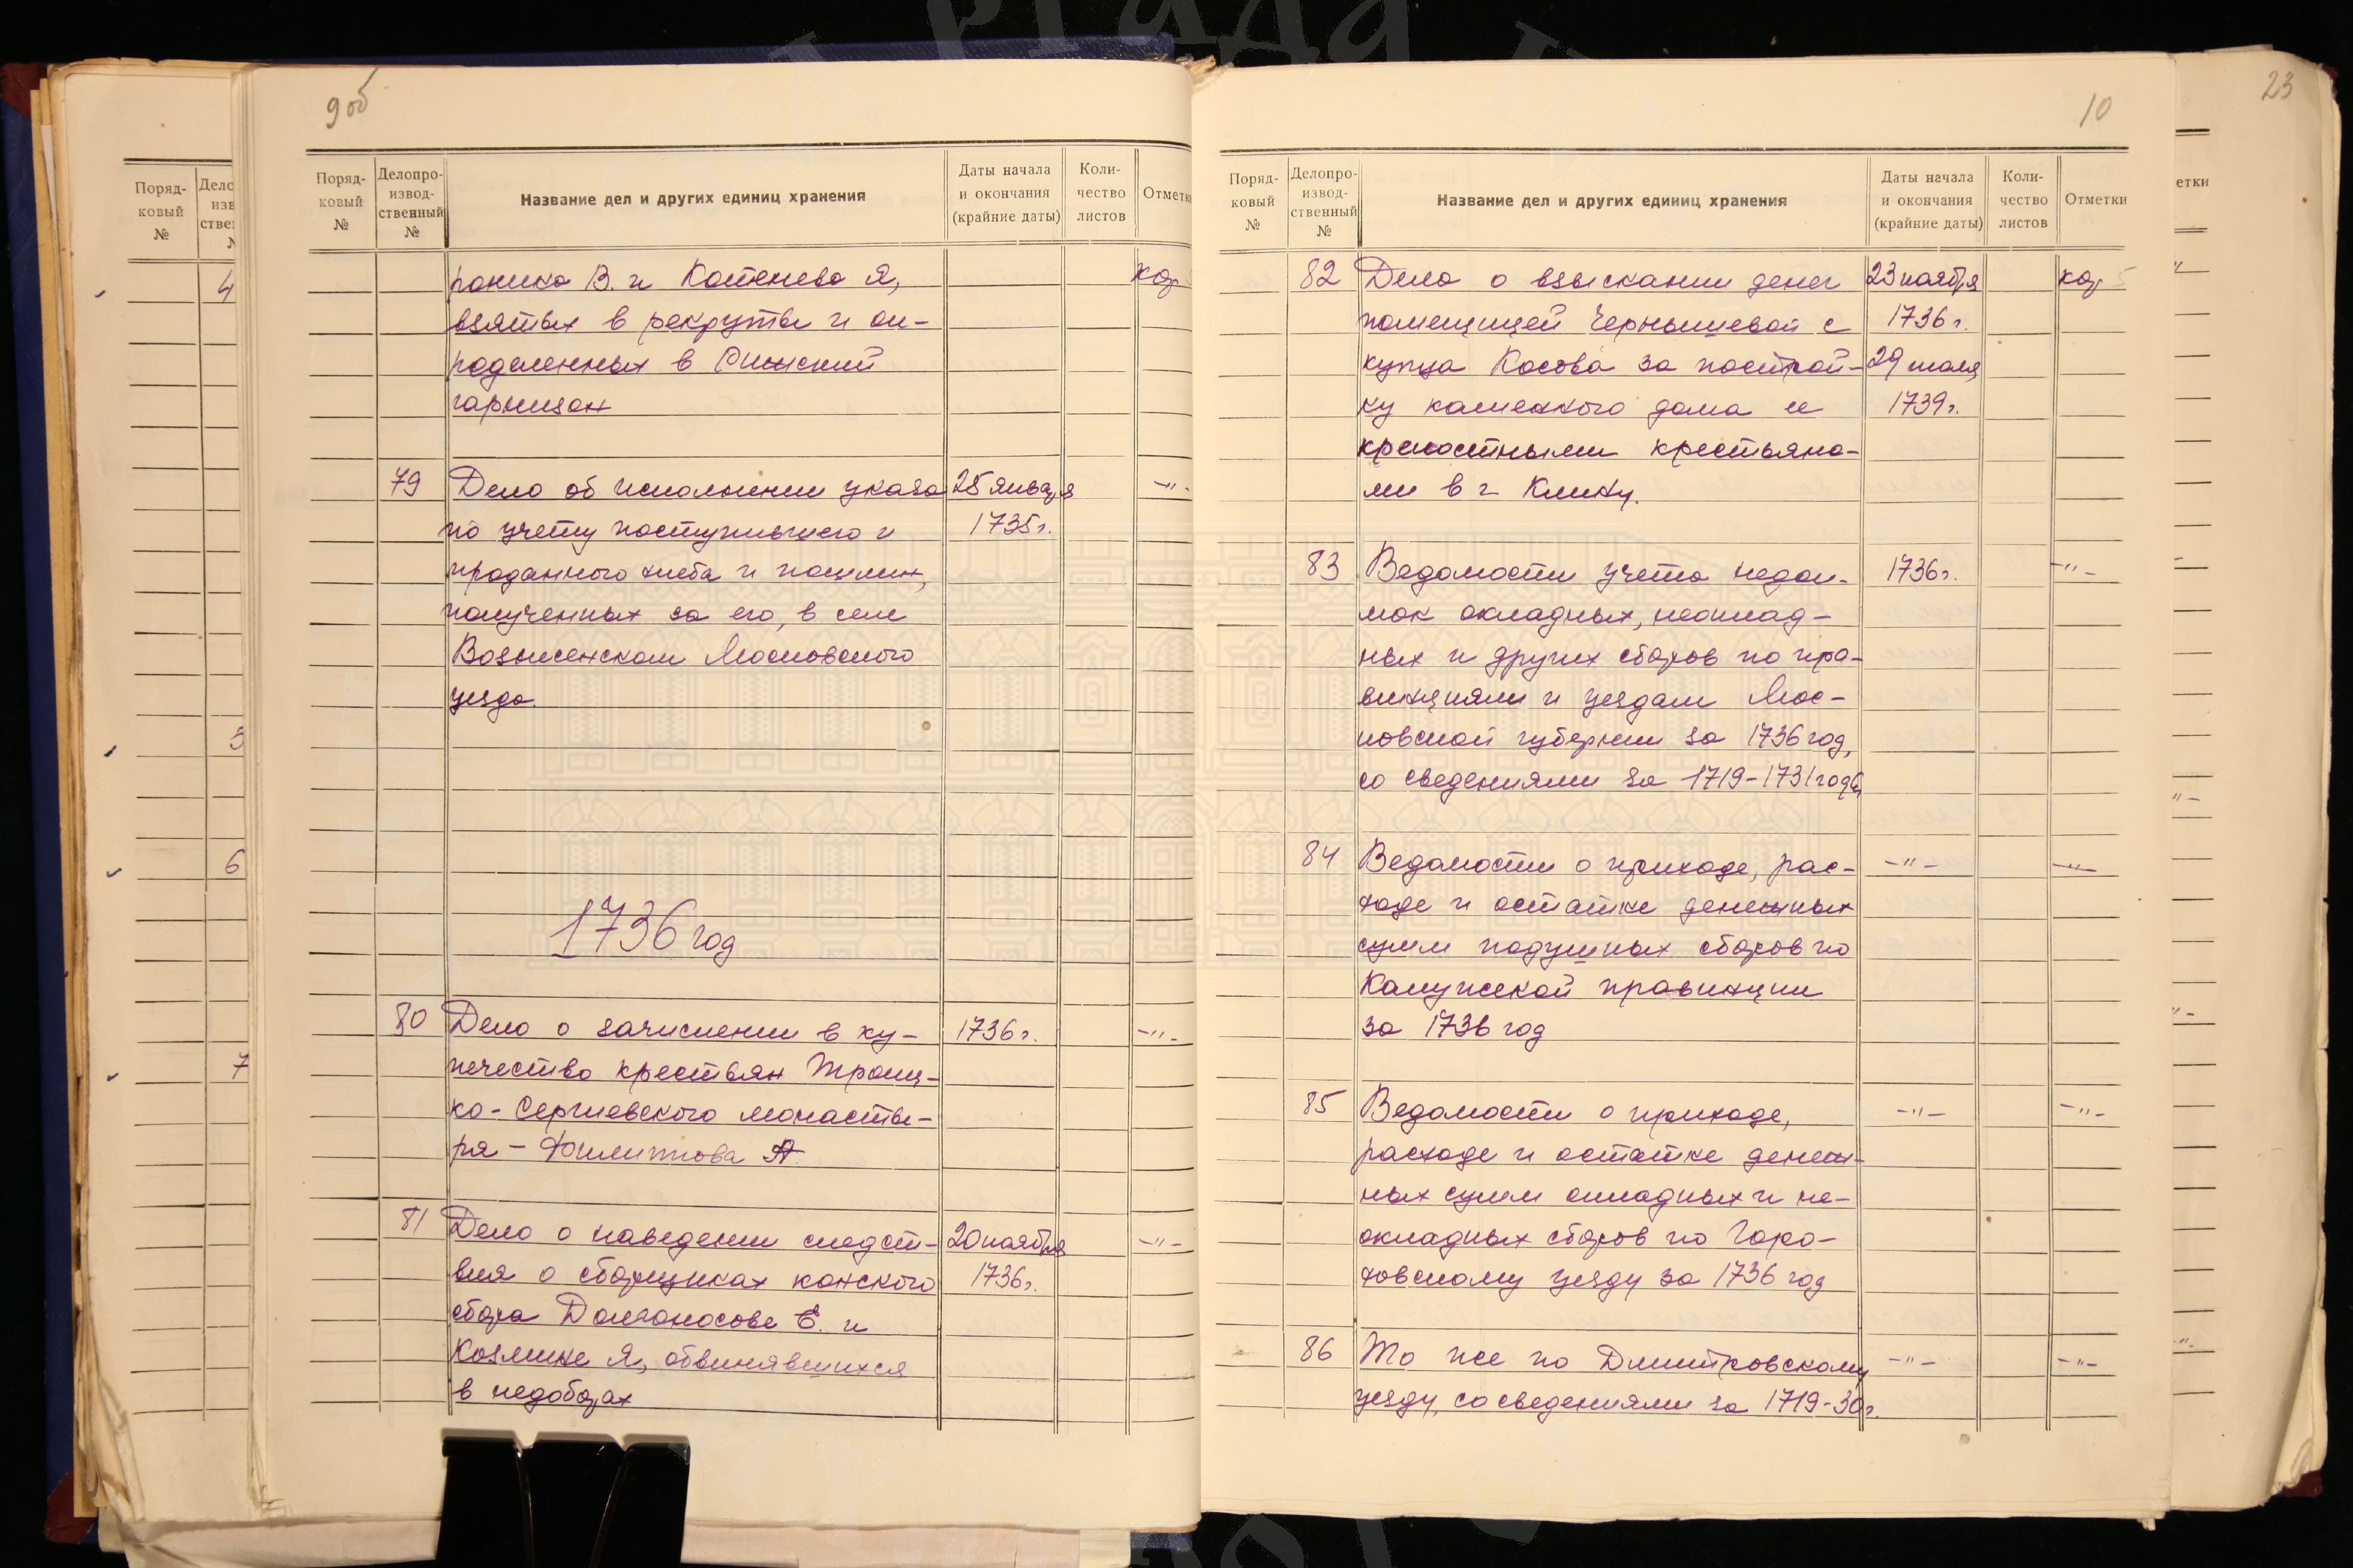 9 об
Поряд-
ковый
№
Делопро-
извод-
ственный
№
Название дел и других единиц хранения
Даты начала
и окончания
(крайние даты)
Коли-
чество
листов
Отметки
роника В. и Котенева Я,
взятых в рекруты и оп-
ределенных в
гарнизон
79 Дело об исполнении указа 25 января -"-
по учету поступившего и 1735г.
проданного хлеба и пошлин,
полученных за его, в селе
Вознесенском Московского
уезда.
1736 год
80 Дело о зачислении в ку- 1736г. -"-
печество крестьян Троиц-
ко-Сергиевского монасты-
ря - Филиппова А
81 Дело о наведении следст- 20 ноября -"-
вия о сборщиках конского 1736г.
сбора Долгоносове Е. и
Козлине Я, обвинявшихся
в недоборах
10
Поряд-
ковый
№
Делопро-
извод-
ственный
№
Название дел и других единиц хранения
Даты начала
и окончания
(крайние даты)
Коли-
чество
листов
Отметки
82 Дело о взыскании денег 23 ноября кор
помещицей Чернышевой с 1736г.
купца Косова за построй- 29 июля
ку каменного дома ее 1739г.
крепостными крестьяна-
ми в г Клину.
83 Ведомости учета недои- 1736г. -"-
мок окладных, неоклад-
ных и других сборов по про-
винциям и уездам Мос-
ковской губернии за 1736 год,
со сведениями за 1719-1731 годы
84 Ведомости о приходе, рас- -"- -"-
ходе и остатке денежных
сумм подушных сборов по
Калужской провинции
за 1736 год
85 Ведомости о приходе, -"- -"-
расходе и остатке денеж-
ных сумм окладных и не-
окладных сборов по Горо-
ховскому уезду за 1736 год
86 То же по Дмитровскому -"- -"-
уезду, со сведениями за 1719-30г.
23
Поряд-
ковый
№
4
5
6
7
етки